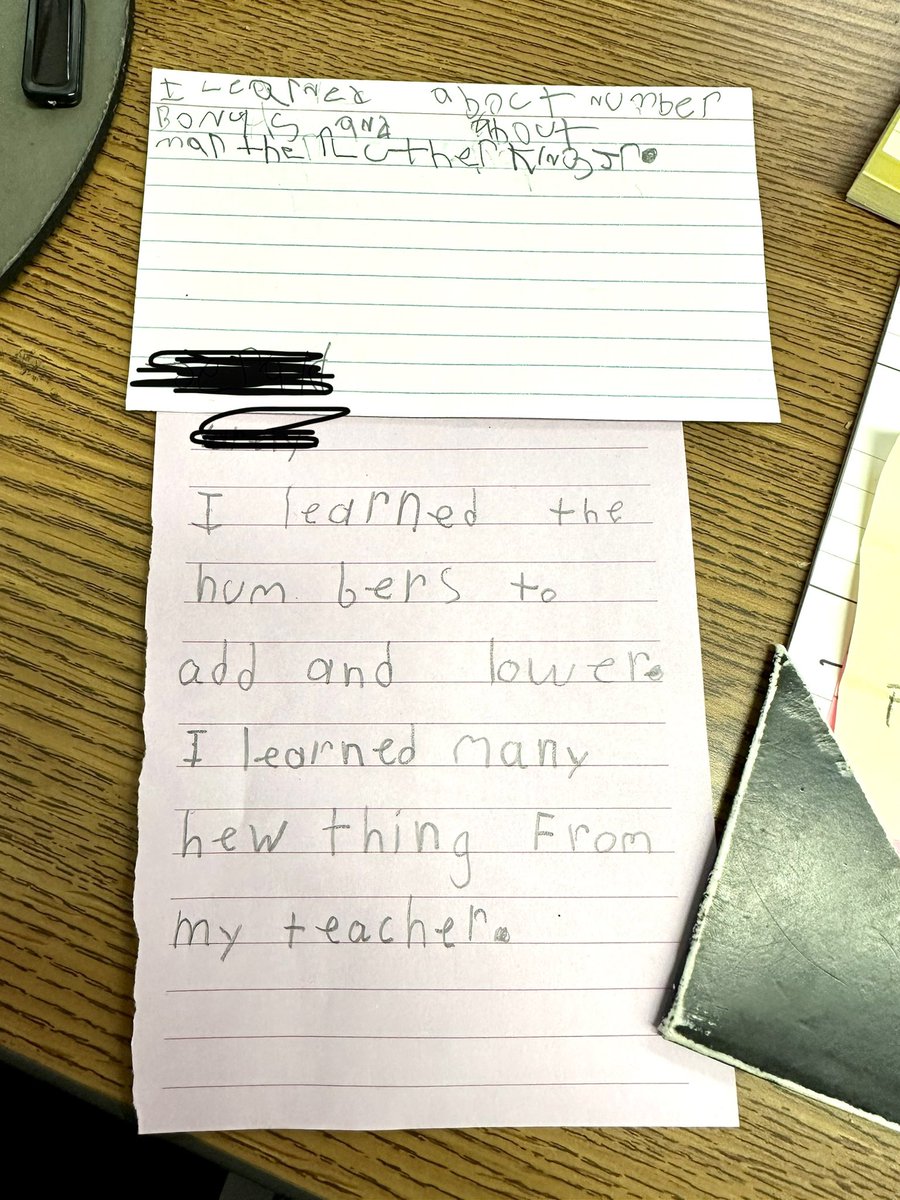 I Learned about number
Bonds and about
mar the r Luther King Jr.
I learned the
hum bers to
add and lower.
I learned many
hew thing From
my teacher.